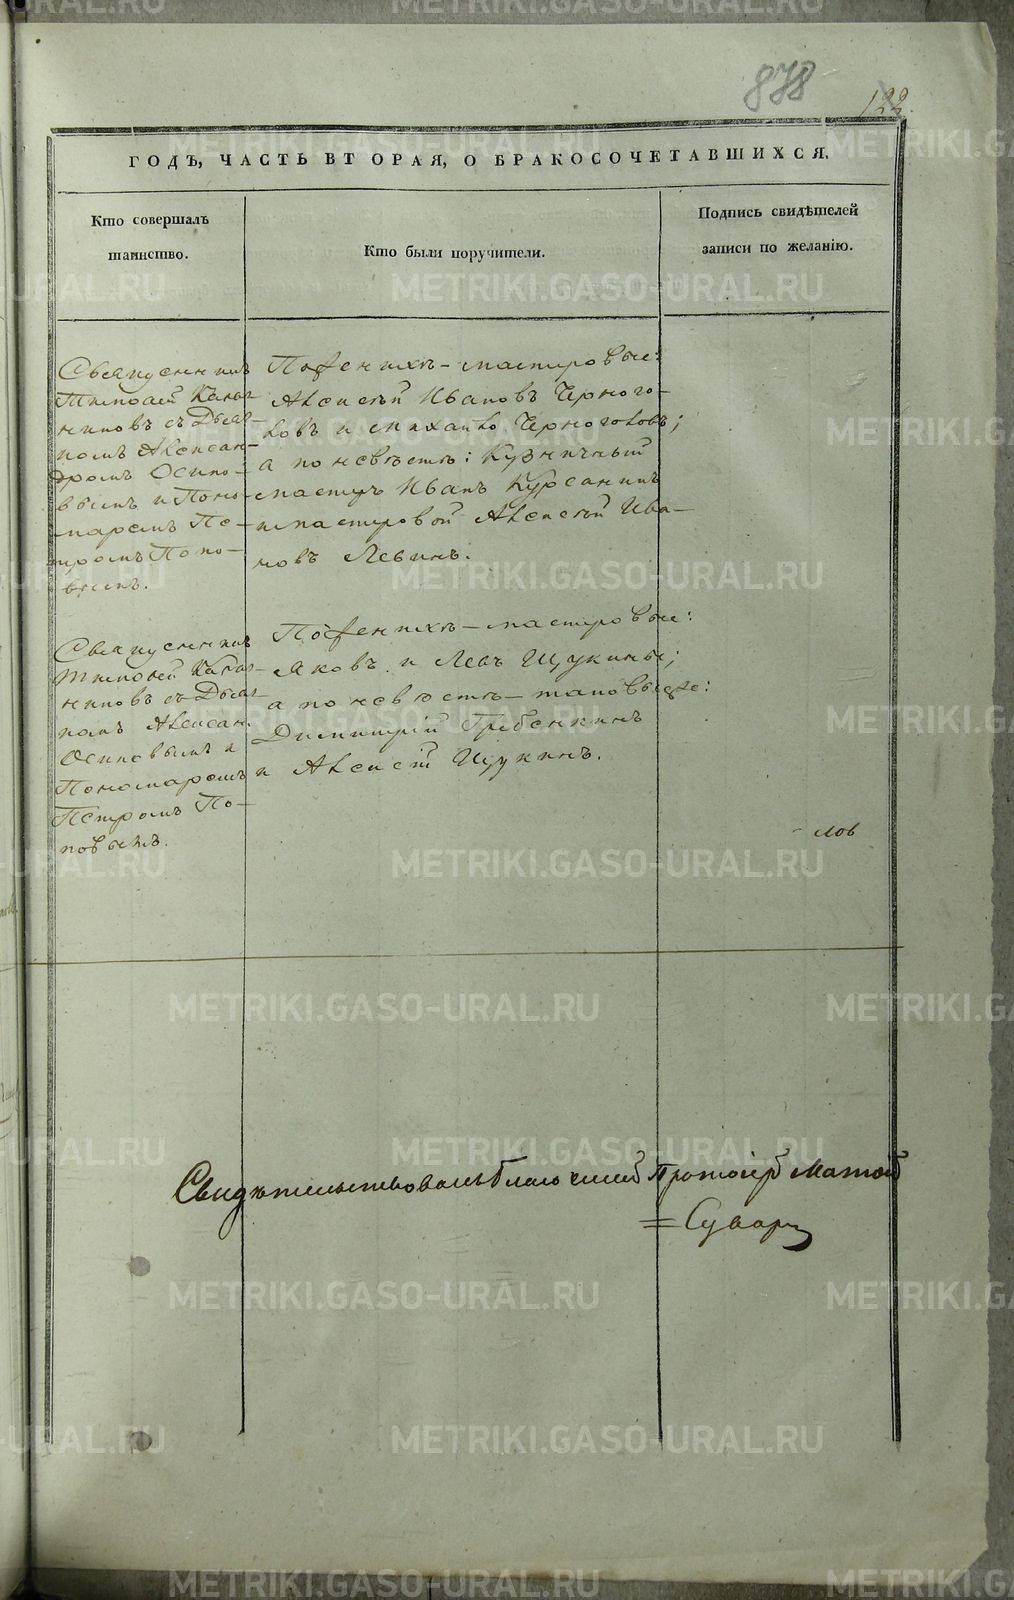 878
122.
ГОДЪ, ЧАСТЬ ВТОРАЯ, О БРАКОСОЧЕТАВШИХСЯ.
Кто совершалъ
таинство.
Кто были поручители.
Подпись свидѣтелей
записи по желанію.
Священникъ
Тимофей
никовъ съ Дьяч-
комъ Алексан-
дромъ Осипо-
вымъ и Поно-
маремъ Пе-
тромъ Попо-
вымъ.
По женихѣ – мастеровые:
Алексѣй Ивановъ Черного-
ловъ и Михайло Черноголовъ;
а по невѣстѣ: Кузничный
мастеръ Иванъ Курсанинъ
и мастеровой Алексѣй Ива-
новъ Левинъ.
Священникъ
Тимофей
никовъ съ Дьяч-
комъ Алексан.
Осиповымъ и
Пономаремъ
Петромъ По-
повымъ.
По женихѣ – мастеровые:
Яковъ и Левъ Щукины;
а по невѣстѣ – таковые же:
Димитрій Гребенкинъ
и Алексѣй Щукинъ.
Свидѣтельствовалъ благочинный Протоіерей
METRIKI.GASO-URAL.RU